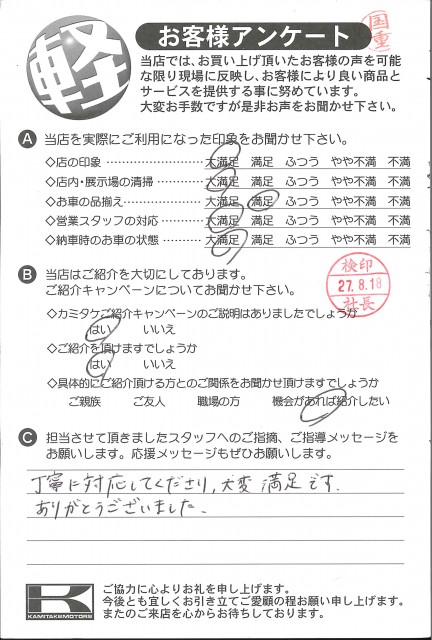 軽
お客様アンケート
国重
当店では、お買い上げ頂いたお客様の声を可能
な限り現場に反映し、お客様により良い商品と
サービスを提供する事に努めています。
大変お手数ですが是非お声をお聞かせ下さい。
A 当店を実際にご利用になった印象をお聞かせ下さい。
◇店の印象 ……………………… 大満足 満足 ふつう やや不満 不満
◇店内・展示場の清掃 ………… 大満足 満足 ふつう やや不満 不満
◇お車の品揃え ………………… 大満足 満足 ふつう やや不満 不満
◇営業スタッフの対応 ………… 大満足 満足 ふつう やや不満 不満
◇納車時のお車の状態 ………… 大満足 満足 ふつう やや不満 不満
B 当店はご紹介を大切にしてあります。
ご紹介キャンペーンについてお聞かせ下さい。
検印
27.8.18
社長
◇カミタケご紹介キャンペーンのご説明はありましたでしょうか
はい いいえ
◇ご紹介を頂けますでしょうか
はい いいえ
◇具体的にご紹介頂ける方とのご関係をお聞かせ頂けますでしょうか
ご親族 ご友人 職場の方 機会があれば紹介したい
C 担当させて頂きましたスタッフへのご指摘、ご指導メッセージを
お願いします。応援メッセージもぜひお願いします。
丁寧に対応してくださり、大変満足です。
ありがとうございました。
K
KAMITAKEMOTORS
ご協力に心よりお礼を申し上げます。
今後とも宜しくお引き立てご愛顧の程お願い申し上げます。
またのご来店を心からお待ちしております。